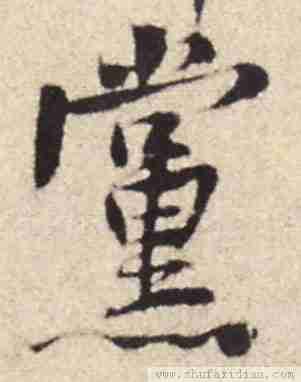 黨
www.shufazidian.com